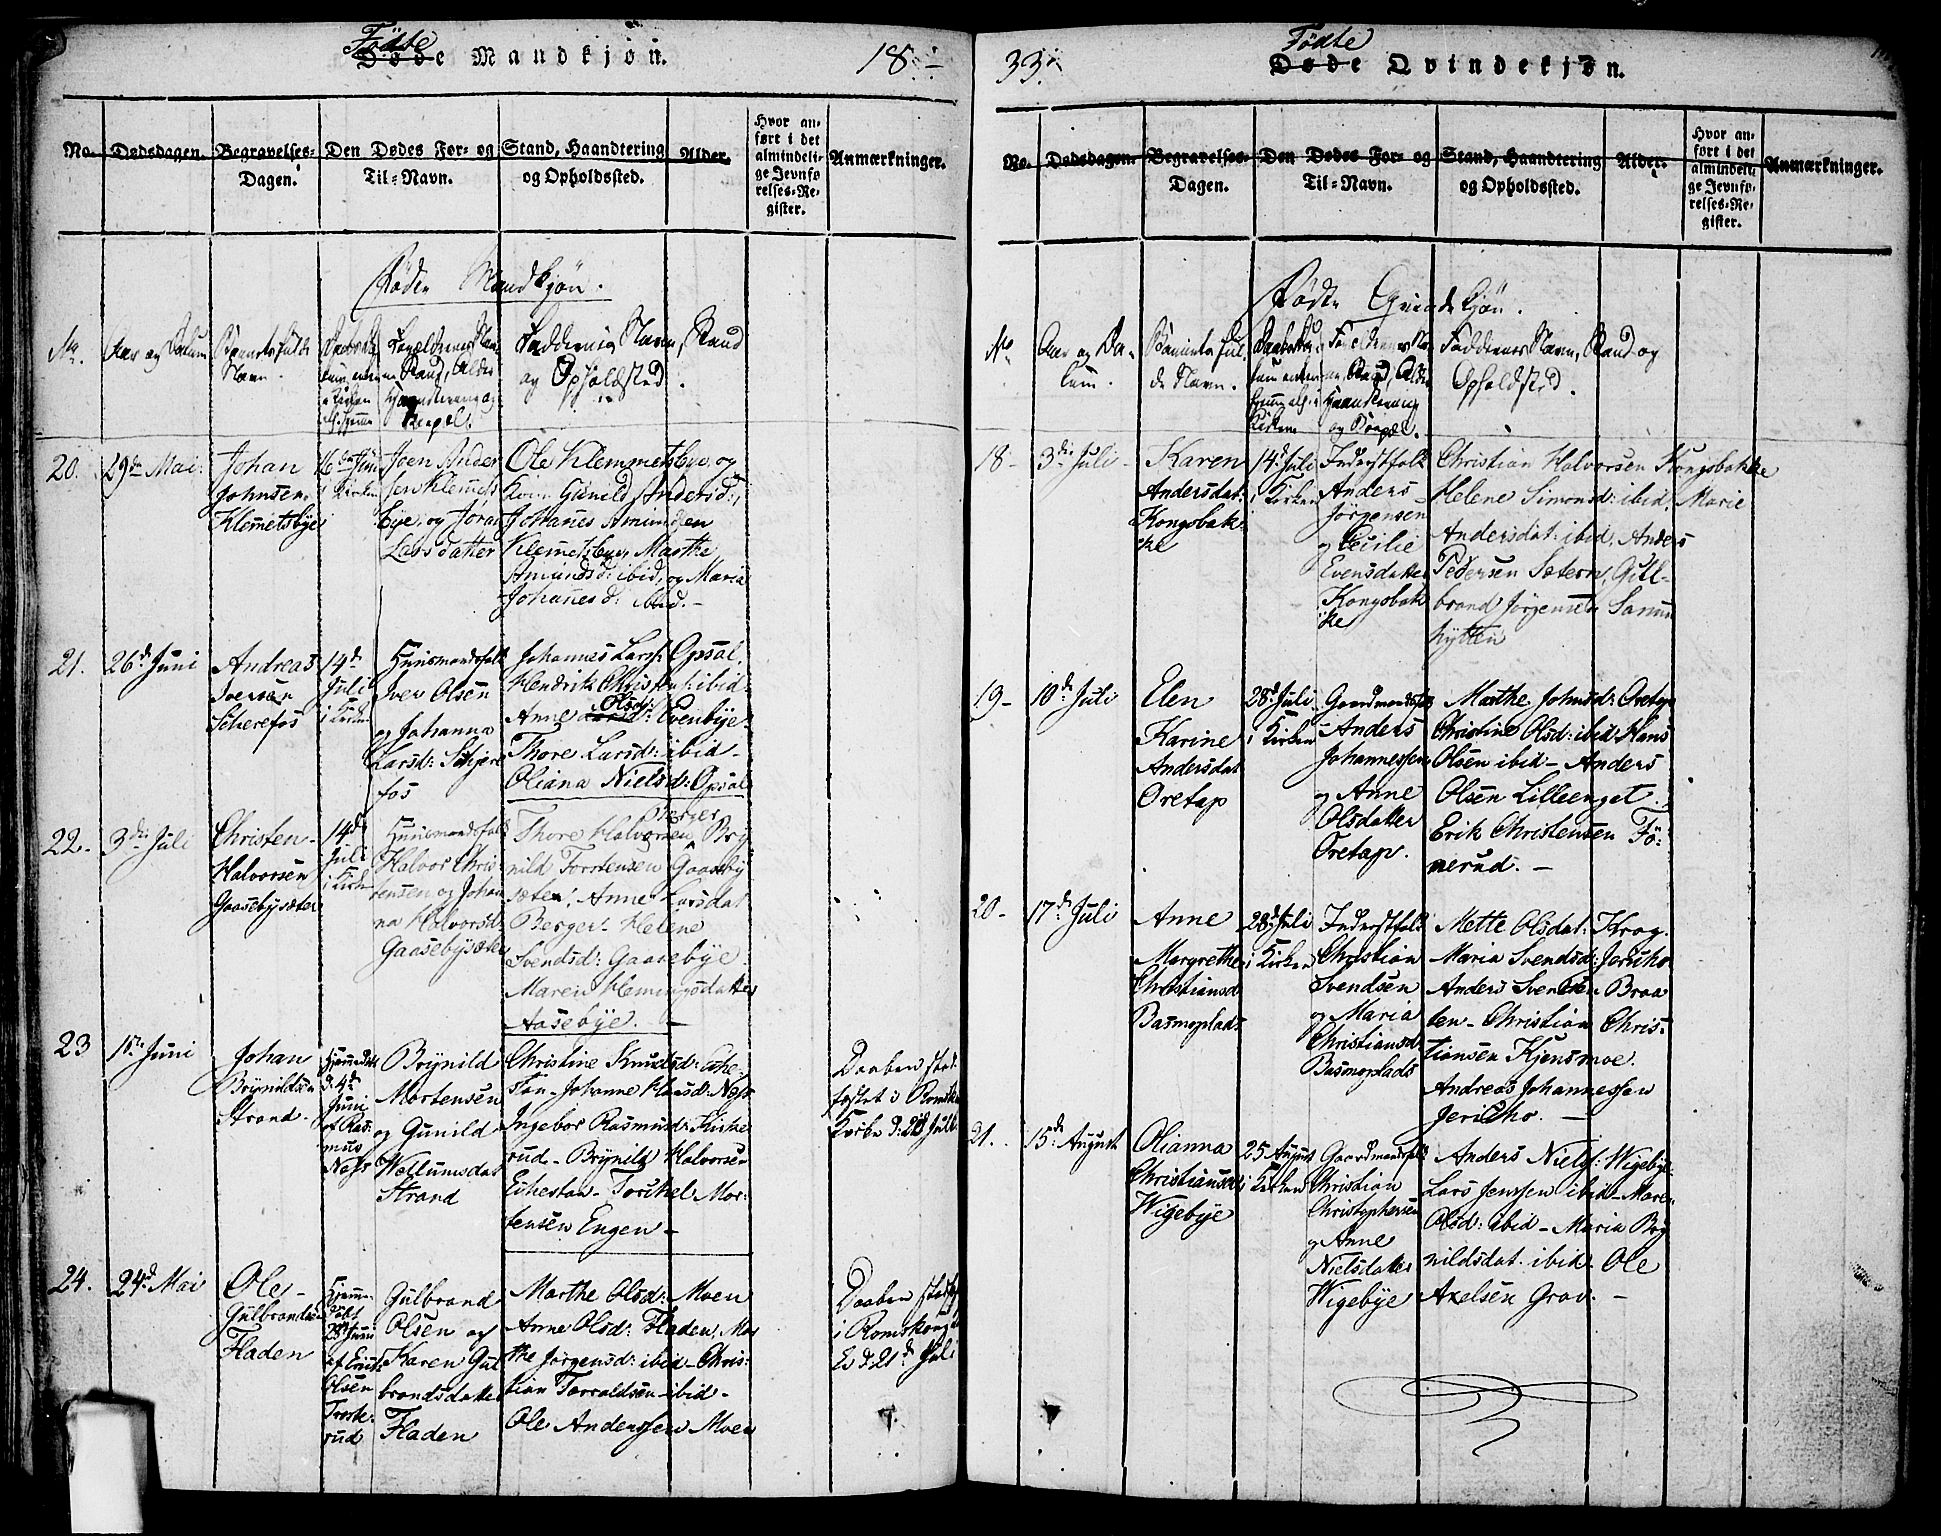 Fødte
Døde Mandkjøn.
18
No.
Dødsdagen.
Begravelses-
Dagen.
Den Dødes For- og
Til-Navn.
Stand, Haandtering
og Opholdssted.
Alder.
Hvor an-
ført i det
almindeli-
ge Jevnfø-
relses-Re-
gister.
Anmærkninger.
Fødte Mandkjøn.
No.
Aar og Datum
Barnets fulde
Navn.
Stand, Alder
Haandtering og
Faddernes Navn, Stand
og Opholdsted.
20.
29de Mai
Johan
Johnsen
Klemetsbye
16de Juni
i Kirken
Joen Ander
sen Klemets
bye, og Jøran
Larsdatter
Ole Klemmetsbye, og
Kone Gunild Andersd:,
Johanes Amundsen
Klemetsbye, Marthe
Amundsd: ibid, og Maria
Johanesd: ibid. -
21.
26de Juni
Andreas
Iversen
Scherefos
14de
Juli
i Kirken
Huusmandsfolk
Iver Olsen
og Johanna
Larsd: Schjere
fos
Johannes Larss: Opsal.
Hendrik Christens: ibid:
Anne Olsd: Evenbye
Thore Larsd: ibid
Oliana Nielsd: Opsal
22.
3de Juli
Christen
Halvorsen
Gaasebysæter
14de
Juli
i Kirken
Huusmandsfolk
Halvor Chris
tensen og Johan
na Halvorsd:
Gaasebysæter
Berger
Thore Halvorsen, Bry
nild Torstensen Gaaseby
sæter, Anne Larsdat
Berger. Helene
Svendsd: Gaasebye.
Maren Hemingsdatter
Aasebye. -
23
1ste Juni
Johan
Brynildsen
Strand.
Hjemmedøbt
d: 4de
Juni
af Ras
mus
Næss
Brynild
Mortensen
og Gunild
Wollumsdat
Strand
Christine Knudsd: Eche-
stan - Johanne Hansd: Næss
Ingebor Rasmusd: Kirke
rud - Brynild Halvorsen
Eihestan - Torchel Mor:
tensen Engen -
Daaben stad
fæstet i Romskou
Kirke d: 28 Juli
24.
24de Mai
Ole
Gulbrandsen
Fladen
Hjemme
døbt
28de Juni
af Erich
Olsen
Troste-
rud
Gulbrand
Olsen og
Karen Gul
brandsdatter
Fladen
Marthe Olsd: Moen
Anne Olsd: Fladen, Mar
the Jørgensd: ibid - Chris:
tian Torvaldsen ibid -
Ole Anderssen Moen
Daaben stadf:
i Romskougs
K: d 21de Juli
33.
Fødte
Døde Qvindekjøn.
No.
Dødsdagen.
Begravelses-
Dagen.
Den Dødes For- og
Til-Navn.
Stand, Haandtering
og Opholdssted.
Alder.
Hvor an-
ført i det
almindeli-
ge Jevnfø-
relses-Re-
gister.
Anmærkninger.
Fødte Qvindekjøn.
No
Aar og Da-
tum.
Barnets ful-
de Navn.
Forældrenes Na
ne, Stand, Alder
Haandtering
og Bopæl.
Faddernes Navn, Stand og
Opholdsted.
18 -
3de Juli -
Karen
Andersdat:
Kongsbak-
ke
14de Juli
i Kirken
Inderstfolk
Anders
Jørgensen
og Cecilie
Evensdatter
Kongsbak
ke
Christian Halvorsen Kongsbakke
Helene Simonsd: ibid, Marie
Andersdat: ibid, Anders
Pedersen Sætern, Gull-
brand Jørgensen Samu
hytten
19 -
10de Juli
Elen
Karine
Andersdat
Oretap
28de Juli
i Kirken
Gaardmandsfolk
Anders
Johannessen
og Anne
Olsdatter
Oretap.
Marthe Johnsd: Oretap
Christine Olsd: ibid: Hans
Olsen ibid - Anders
Olsen Lilleenget.
Erik Christensen Fö-
nerud. -
20 -
17de Juli
Anne
Margrethe
Christiansd
Basmoplads
28de Juli
i Kirken
Inderstfolk
Christian
Svendsen
og Maria
Christiansd
Basmoplads
Mette Olsdat: Krog.
Maria Svendsd: Jericho
Anders Svendsen Braa
ten - Christian Chris:
tiansen Kjensmoe.
Andreas Johannessen
Jericho. -
21.
15de August
Olianna
Christiansd
Wigebye
25 August
i Kirken
Gaardmandsfolk
Christian
Christophersen
og Anne
Nielsdatter
Wigebye
Anders Niels: Wigebye
Lars Jenssen ibid - Maren
Olsd: ibid - Maria Bry
nildsdat. ibid. Ole
Axelsen Grav. -